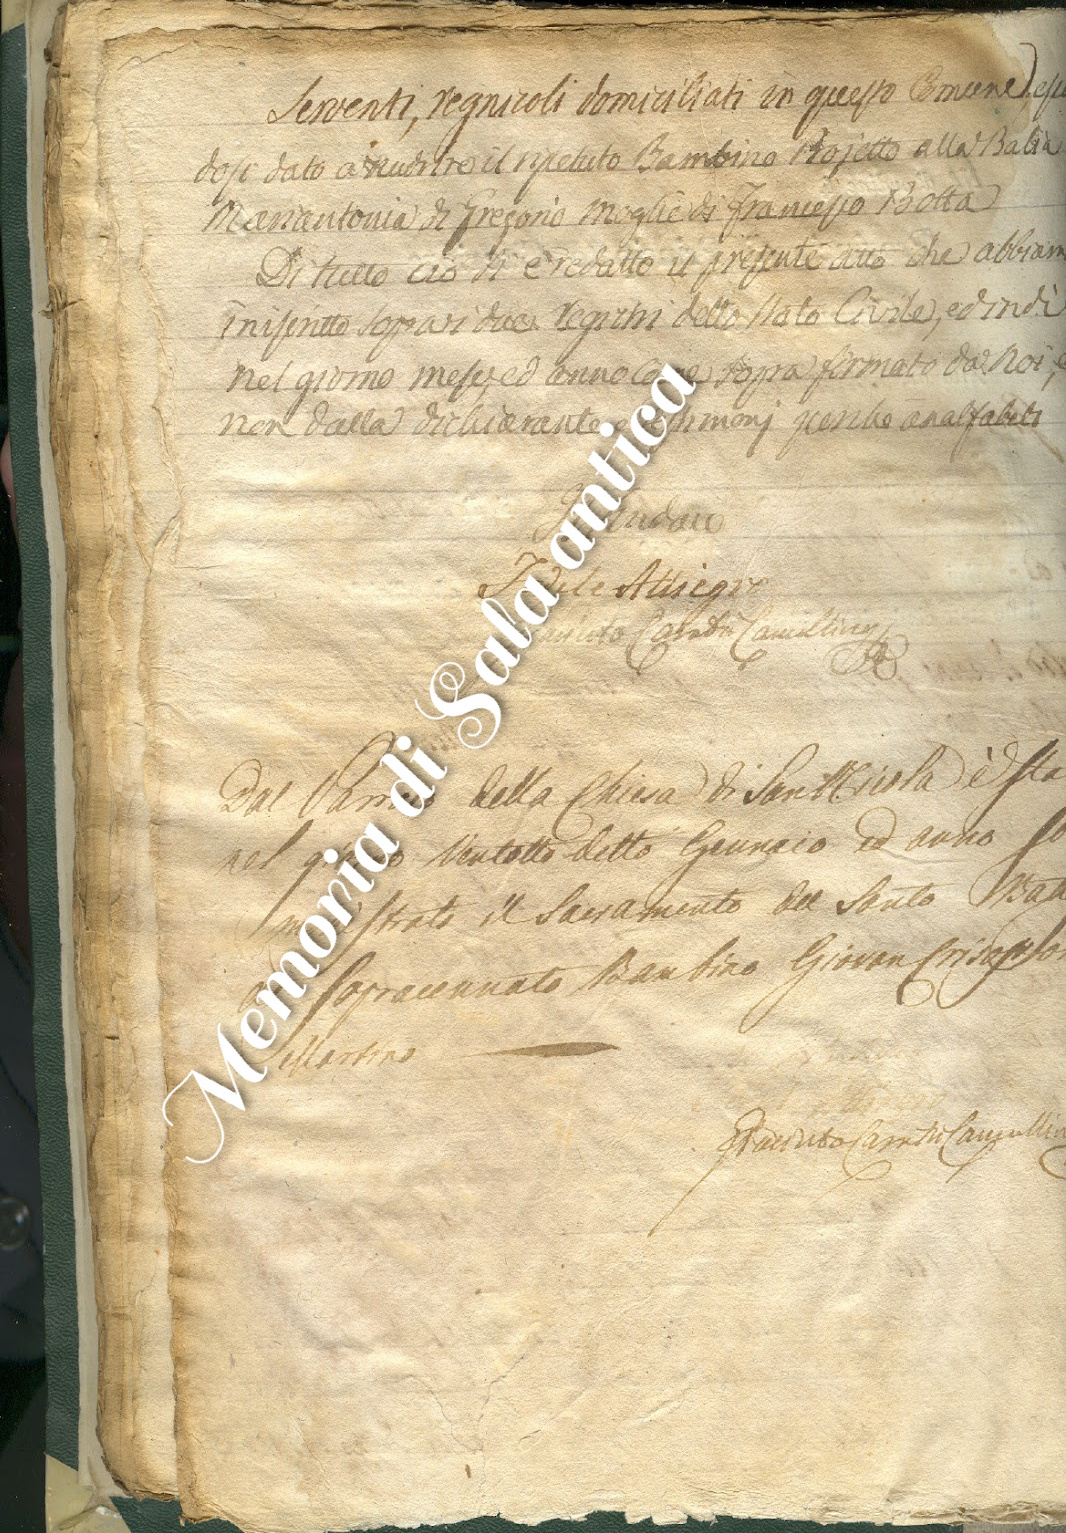 Serventi, regnicoli domiciliati in questo Comune)
dosi dato a nudrire il ripetuto Bambino Projetto alla Balia
Mariantonia di Gregorio Moglie di Francesco Botta
Di tutto ciò si è redatto il presente atto che abbiam
inscritto sopra i due registri dello Stato Civile, ed indi
Nel giorno mese, ed anno come sopra firmato da Noi, e
non dalla dichiarante e testimonj perche analfabeti
Allegro
Dal della Chiesa di San Nicola è sta
nel giorno Ventotto detto Gennaio ed anno
il Sacramento del Santo Batt
Sopracennato Bambino Giovan
Memoria di Sala antica